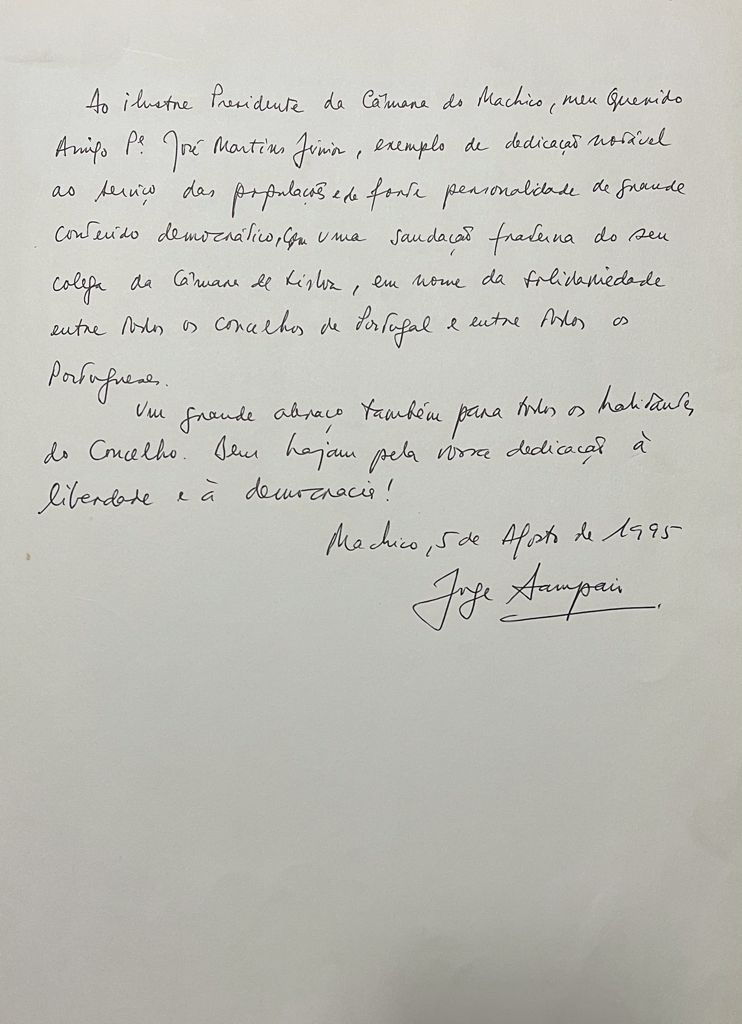 Ao ilustre Presidente da Câmara do Machico, meu Querido
Amigo Pe. José Martins Júnior, exemplo de dedicação notável
ao serviço das populações e de forte personalidade de grande
conteúdo democrático, com uma saudação fraterna do seu
colega da Câmara de Lisboa, em nome da solidariedade
entre todos os concelhos de Portugal e entre todos os
Portugueses.
Um grande abraço também para todos os habitantes
do Concelho. Bem hajam pela vossa dedicação à
liberdade e à democracia!
Machico, 5 de Agosto de 1995
Jorge Sampaio